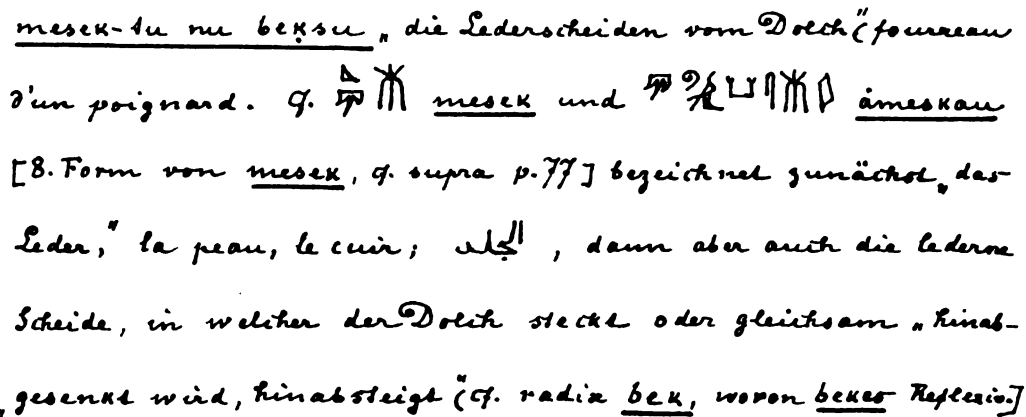 mesek-tu nu beḳsu „die Lederscheiden vom Dolch“ (fourreau
d'un poignard. Cf. mesek und åmeskau
[8. Form von mesek, cf. supra p. 77] bezeichnet zunächst „das
Leder,“ la peau, le cuir; الجلد, dann aber auch die lederne
Scheide, in welcher der Dolch steckt oder gleichsam „hinab-
gesenkt wird, hinabsteigt“ (cf. radix bek, wovon bekes Reflexiv.]